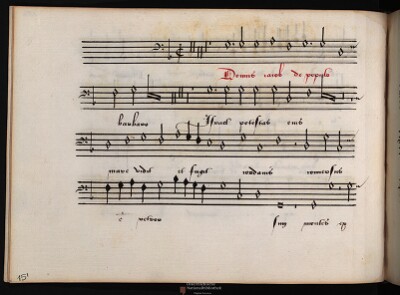 Domus iacob de populo
barbaro Israel potestas eius
mare vidit et fugit iordanis conversus
est retror montes ex
151